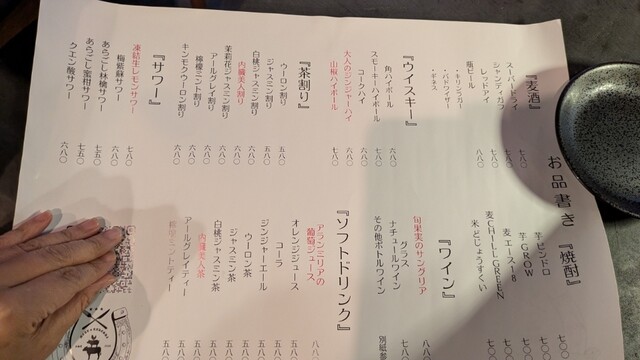 お品書き
『麦酒』
スーパードライ 七八〇
シャンディガフ 七八〇
レッドアイ 八八〇
瓶ビール
・キリンラガー
・バドワイザー
・ギネス
『ウイスキー』
角ハイボール 六八〇
スモーキーハイボール 七八〇
コークハイ 六八〇
大人のジンジャーハイ 六八〇
山椒ハイボール 七八〇
『茶割り』
ウーロン割り 五八〇
ジャスミン割り 五八〇
白桃ジャスミン割り 六八〇
内臓美人割り 六八〇
茉莉花ジャスミン割り 六八〇
アールグレイ割り 六八〇
檸檬ミント割り 六八〇
キンモクウーロン割り 六八〇
『サワー』
凍結生レモンサワー 七八〇
梅紫蘇サワー 六八〇
あらごし林檎サワー 七五〇
あらごし蜜柑サワー 七五〇
クエン酸サワー 六八〇
『焼酎』
芋 ピンドロ 七〇
芋 GROW 七〇
麦 エース18 七〇
麦 CHILL GREEN 七〇
米 とじょうすくい 七〇
『ワイン』
旬果実のサングリア 八八〇
グラス
ナチュールワイン 七八〇
その他ボトルワイン 別紙参
『ソフトドリンク』
アランミリアの
葡萄ジュース 八八
オレンジジュース 五八
コーラ 五八
ジンジャーエール 五八
ウーロン茶 五八
ジャスミン茶 五八
白桃ジャスミン茶 五八
内臓美人茶 五八
アールグレイティー 五八
檸檬ミントティー 五八